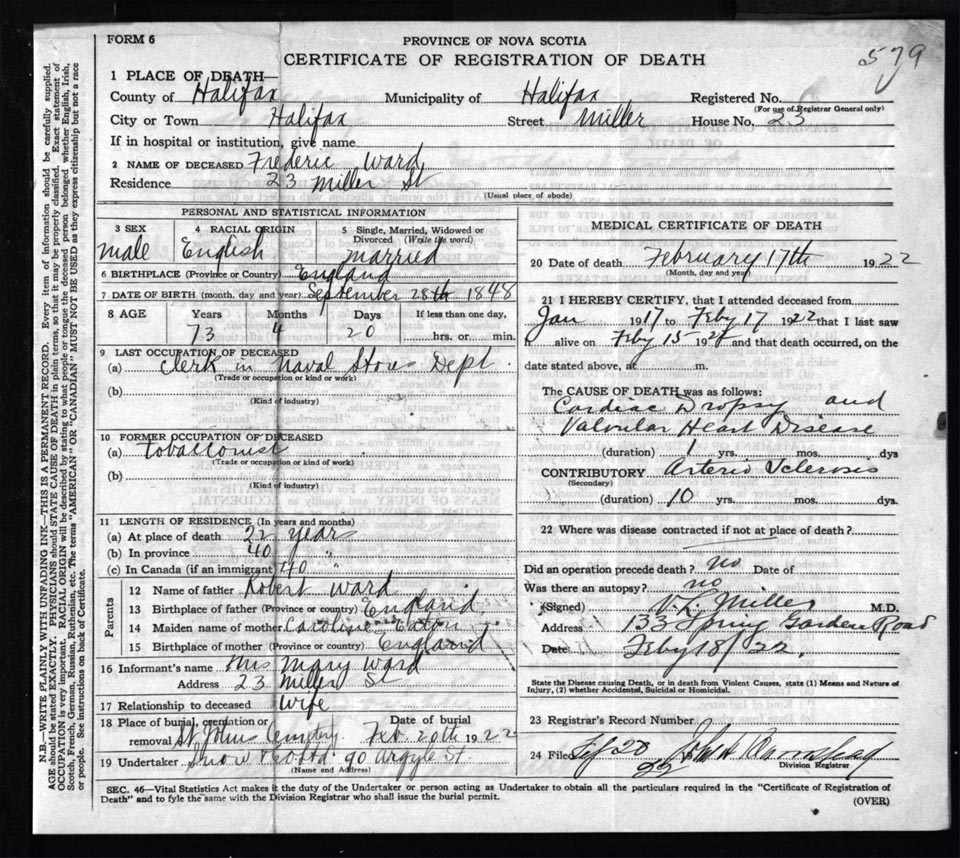 FORM 6
PROVINCE OF NOVA SCOTIA
CERTIFICATE OF REGISTRATION OF DEATH
579
1 PLACE OF DEATH—
County of Halifax Municipality of Halifax Registered No.
(For use of Registrar General only)
City or Town Halifax Street Miller House No. 23
If in hospital or institution, give name
2 NAME OF DECEASED Frederic Ward
Residence 23 Miller St
(Usual place of abode)
PERSONAL AND STATISTICAL INFORMATION
3 SEX 4 RACIAL ORIGIN 5 Single, Married, Widowed or Divorced (Write the word)
Male English Married
6 BIRTHPLACE (Province or Country) England
7 DATE OF BIRTH (month, day and year) September 28th 1848
8 AGE Years Months Days If less than one day,
73 4 20 hrs. or min.
9 LAST OCCUPATION OF DECEASED
(a) Clerk in Naval Stores Dept
(Trade or occupation or kind or work)
(b)
(Kind of industry)
10 FORMER OCCUPATION OF DECEASED
(a) tobacconist
(Trade or occupation or kind of work)
(b)
(Kind of industry)
11 LENGTH OF RESIDENCE (In years and months)
(a) At place of death 22 years
(b) In province 40 "
(c) In Canada (if an immigrant) 40 "
Parents
12 Name of father Robert Ward
13 Birthplace of father (Province or country) England
14 Maiden name of mother Caroline Eaton
15 Birthplace of mother (Province or country) England
16 Informant's name Mrs Mary Ward
Address 23 Miller St
17 Relationship to deceased Wife
18 Place of burial, cremation or Date of burial
removal St Johns Cemetery Feb. 20th 1922
19 Undertaker Snow 90 Argyle St.
(Name and Address)
MEDICAL CERTIFICATE OF DEATH
20 Date of death February 17th 1922
(Month, day and year)
21 I HEREBY CERTIFY, that I attended deceased from
Jan 1917 to Feby 17 1922 that I last saw
h alive on Feby 15 192 and that death occurred, on the
date stated above, at m.
The CAUSE OF DEATH was as follows:
Cardiac Dropsy and
Valvular Heart Disease
(duration) 1 yrs. mos. dys
CONTRIBUTORY Arterio Sclerosis
(Secondary)
(duration) 10 yrs. mos. dys.
22 Where was disease contracted if not at place of death?
Did an operation precede death? no Date of
Was there an autopsy? no
(Signed) V. L. Miller M.D.
Address 133 Spring Garden Road
Date Feby 18/22.
State the Disease causing Death, or in death from Violent Causes, state (1) Means and Nature of
Injury, (2) whether Accidental, Suicidal or Homicidal.
23 Registrar's Record Number
24 Filed 20
22
Division Registrar
SEC. 46—Vital Statistics Act makes it the duty of the Undertaker or person acting as Undertaker to obtain all the particulars required in the "Certificate of Registration of
Death" and to fyle the same with the Division Registrar who shall issue the burial permit.
(OVER)
N.B.—WRITE PLAINLY WITH UNFADING INK—THIS IS A PERMANENT RECORD. Every item of information should be carefully supplied.
AGE should be stated EXACTLY. PHYSICIANS should STATE CAUSE OF DEATH in plain terms, so that it may be properly classified. Exact statement of
OCCUPATION is very important. RACIAL ORIGIN will be described by stating to what people or tongue the deceased person belonged whether English, Irish,
Scotch, French, German, Russian, Ruthenian, etc. The terms "AMERICAN" OR "CANADIAN" MUST NOT BE USED as they express citizenship but not a race
or people. See instructions on back of Certificate.